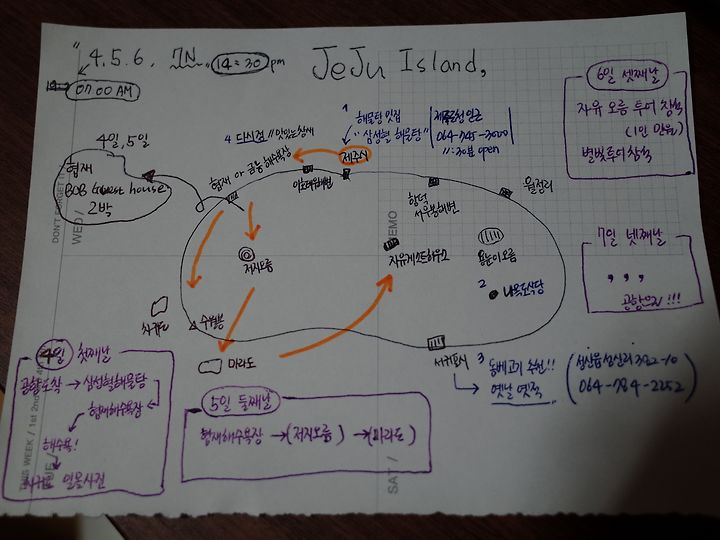 "4.5.6. 7N. 14:30 pm
07:00 AM
JeJu Island,
4일,5일
협재
BOB Guest house
2박
4 단식점 // 맛있는 참새
1
해물탕 맛집
"삼성혈 해물탕"
제주시청 인근
064-745-3000
협재 or 금능 해수욕장
제주시
이호테우해변
함덕
서우봉해변
월정리
저지오름
자유게스트하우스
용눈이오름
2
나목도식당
차귀도
수월봉
마라도
서귀포시
3 돔베고기 추천!!
옛날 옛적
(성산읍 성산리 392-10
064-784-2252)
6일 셋째날
자유 오름 투어 참석
(1인 만원)
별빛투어 참석
7일 넷째날
, , ,
공항으로!!!
4일 첫째날
공항도착 → 삼성혈해물탕
협재해수욕장
해수욕!
차귀도 일몰사진
5일 둘째날
협재해수욕장 → (저지오름) → (마라도)
DON'T FORGET
WED /
MEMO
THIS WEEK / 1st 2nd
TUE /
SAT /